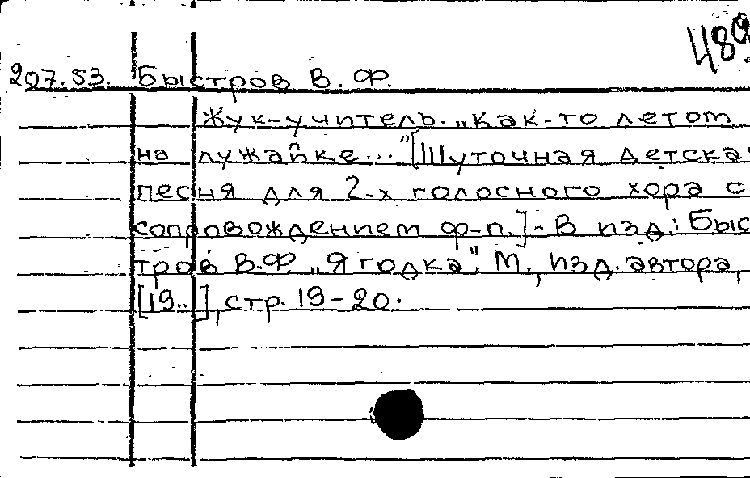 489
207.53. Быстров В. Ф.
Жук-учитель. „Как-то летом
на лужайке..." [Шуточная детская
песня для 2-х голосного хора с
сопровождением ф-п.] - В изд.: Быс
тров В.Ф „Ягодка". М., изд. автора,
[19..], стр. 19-20.